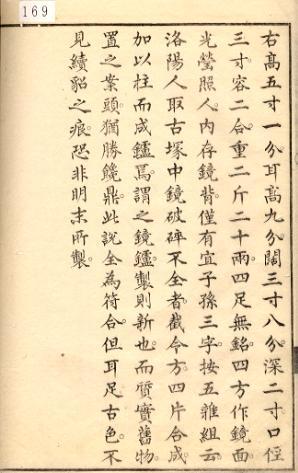 169
右高五寸一分。耳高九分。闊三寸八分。深二寸口徑
三寸容二合。重二斤二十兩。四足無銘四方作鏡面
光瑩照人。內存鏡背。僅有宜子孫三字按五雜組云
洛陽人取古塚中鏡破碎不全者截令方四片合成
加以柱而成鑪焉。謂之鏡鑪。製則新也。而質實舊物
置之案頭猶勝饞鼎。此說全為符合。但耳足古色。不
見續貂之痕。恐非明末所製。